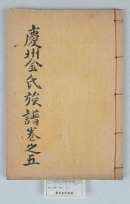 慶州金氏族譜卷之五